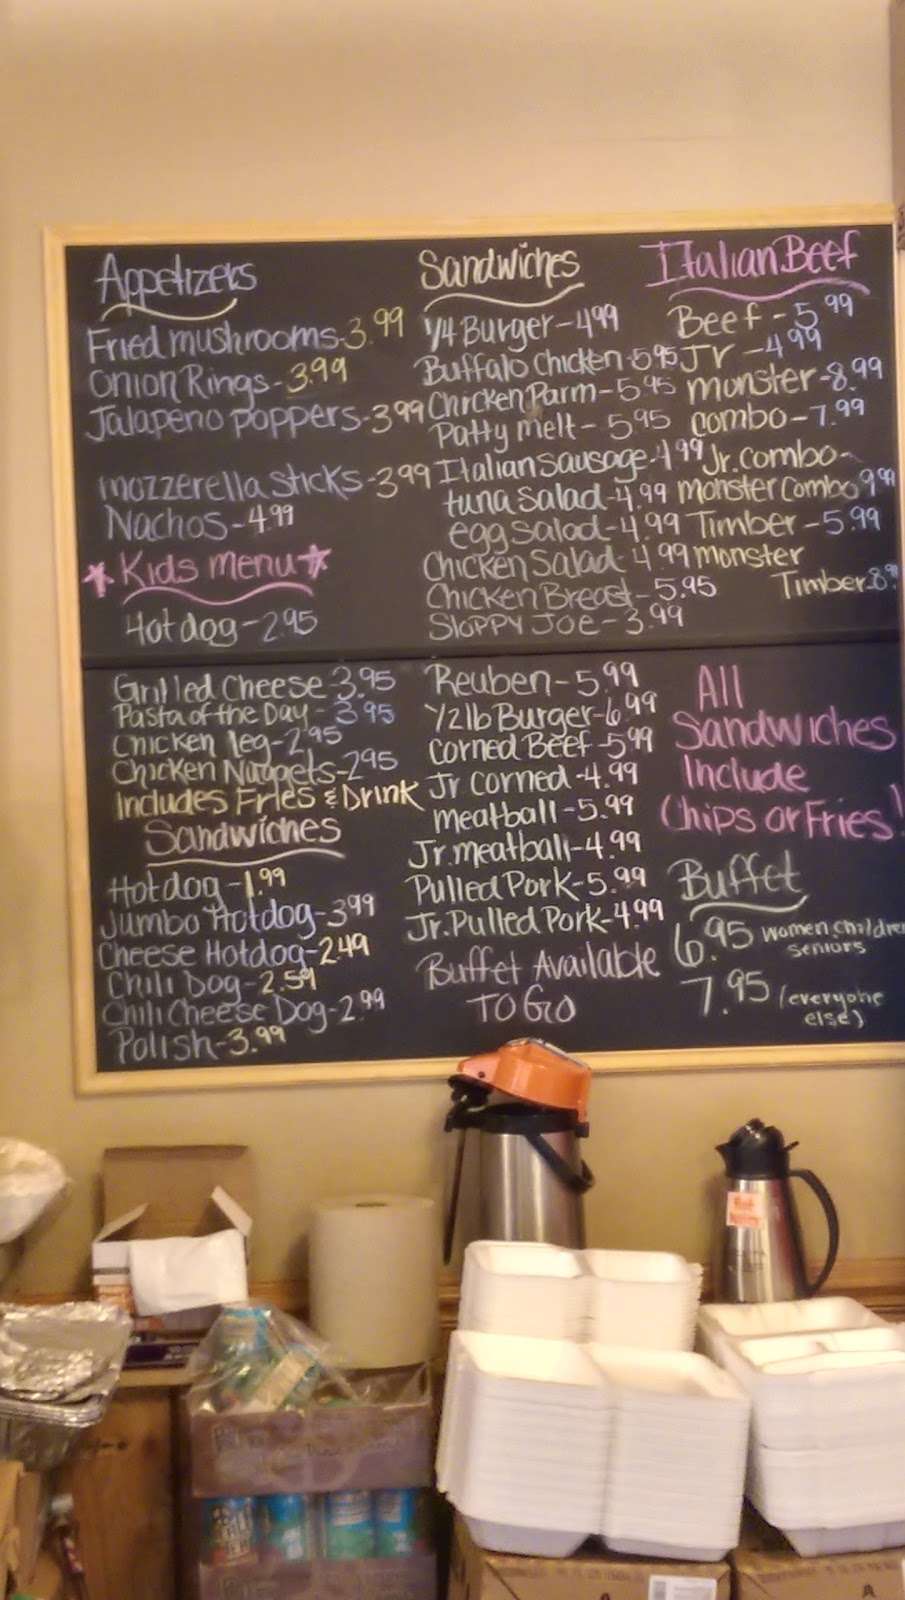 Appetizers
Fried mushrooms-3.99
Onion Rings-3.99
Jalapeno poppers-3.99
mozzerella sticks-3.99
Nachos-4.99
Kids menu
Hot dog-2.95
Grilled Cheese-3.95
Pasta of the Day-3.95
Chicken leg-2.95
Chicken Nuggets-2.95
Includes Fries & Drink
Sandwiches
Hotdog-1.99
Jumbo Hotdog-3.99
Cheese Hotdog-2.49
Chili Dog-2.59
Chili Cheese Dog-2.99
Polish-3.99
Sandwiches
1/4 Burger-4.99
Buffalo Chicken-5.95
Chicken Parm-5.95
Patty melt-5.95
Italian Sausage-4.99
tuna Salad-4.99
egg Salad-4.99
Chicken Salad-4.99
Chicken Breast-5.95
Sloppy Joe-3.99
Reuben-5.99
1/2 lb Burger-6.99
Corned Beef-5.99
Jr Corned-4.99
meatball-5.99
Jr. meatball-4.99
Pulled Pork-5.99
Jr. Pulled Pork-4.99
Buffet Available
TO GO
Italian Beef
Beef-5.99
Jr-4.99
monster-8.99
combo-7.99
Jr. combo-
monster Combo 9.99
Timber-5.99
monster
Timber-8.9
All
Sandwiches
Include
Chips or Fries!
Buffet
6.95 women, children
seniors
7.95 (everyone
else)